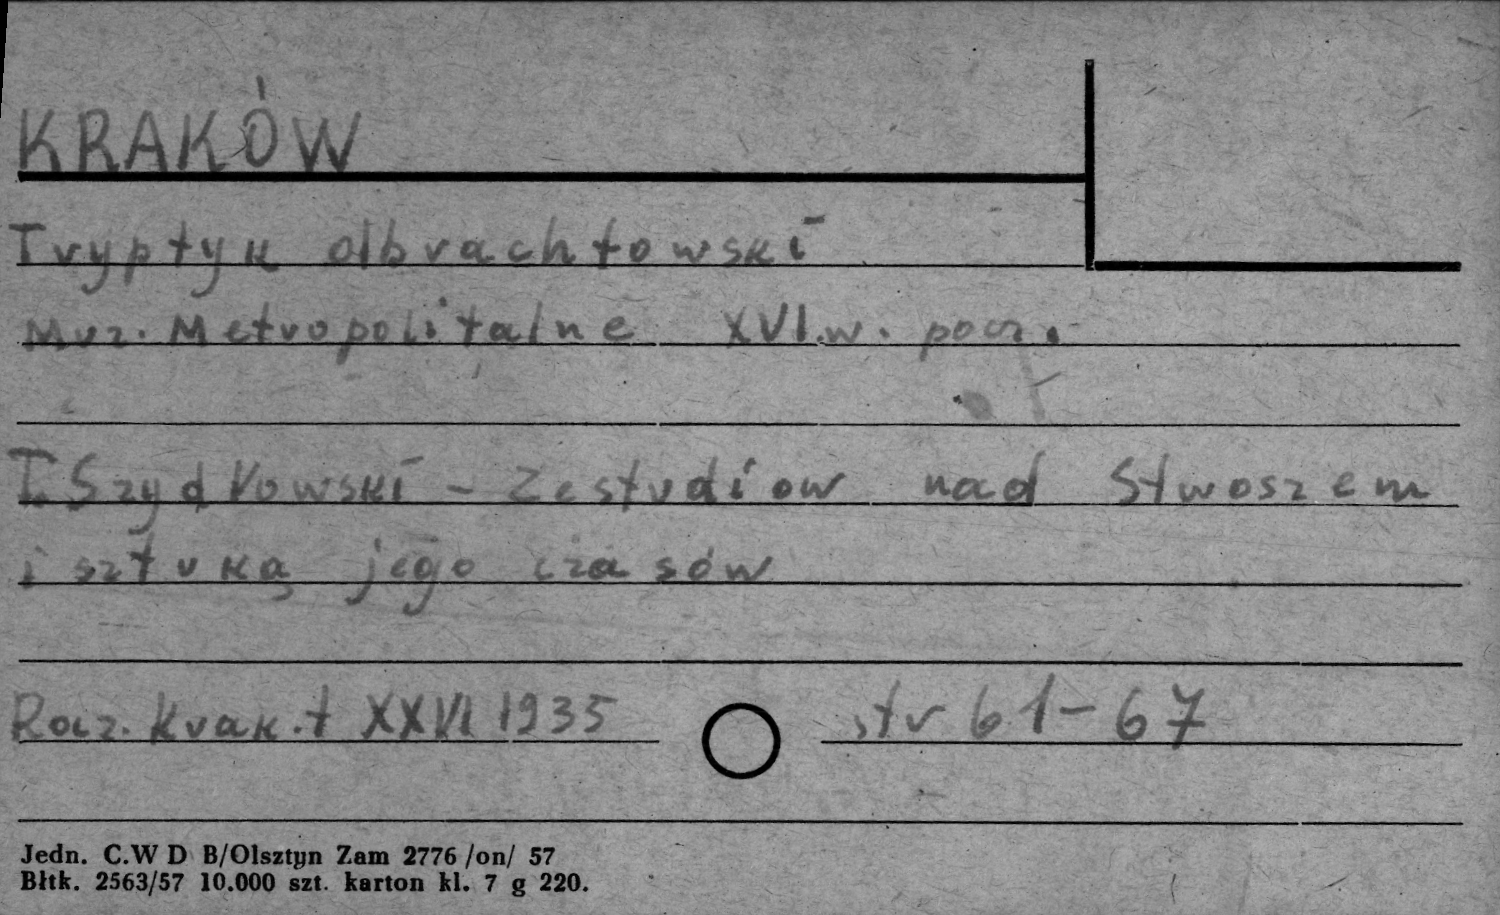 KRAKÓW
Tryptyk olbrachtowski
Muz. Metropolitalne XVI.w. pocz.
T. Szydłowski - Ze studiow nad Stwoszem
i sztuką jego czasów
Rocz. Krak. t XXVI 1935 str 61-67
Jedn. C.W D B/Olsztyn Zam 2776 /on/ 57
Błtk. 2563/57 10.000 szt. karton kl. 7 g 220.